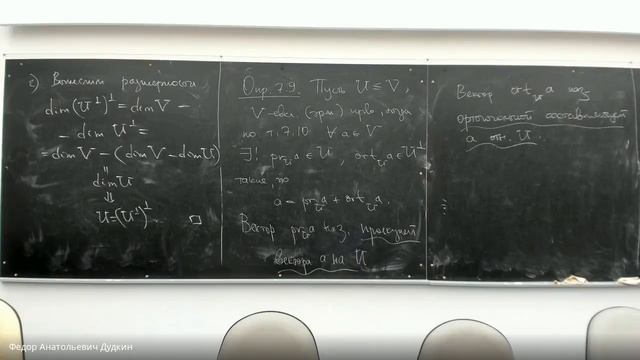 2) Вычислим размерности
dim(U^⊥)^⊥ = dim V -
- dim U^⊥ =
= dim V - (dim V - dim U)
"
dim U
⇓
U = (U^⊥)^⊥ □
Опр. 7.9. Пусть U ≤ V,
V - евкл. (эрм) пр-во, тогда
по т. 7.10 ∀ a ∈ V
∃! pr_U a ∈ U, ort_U a ∈ U^⊥
такие, что
a = pr_U a + ort_U a.
Вектор pr_U a наз. проекцией
вектора a на U
Вектор ort_U a наз.
ортогональной составляющей
a отн. U.
Федор Анатольевич Дудкин